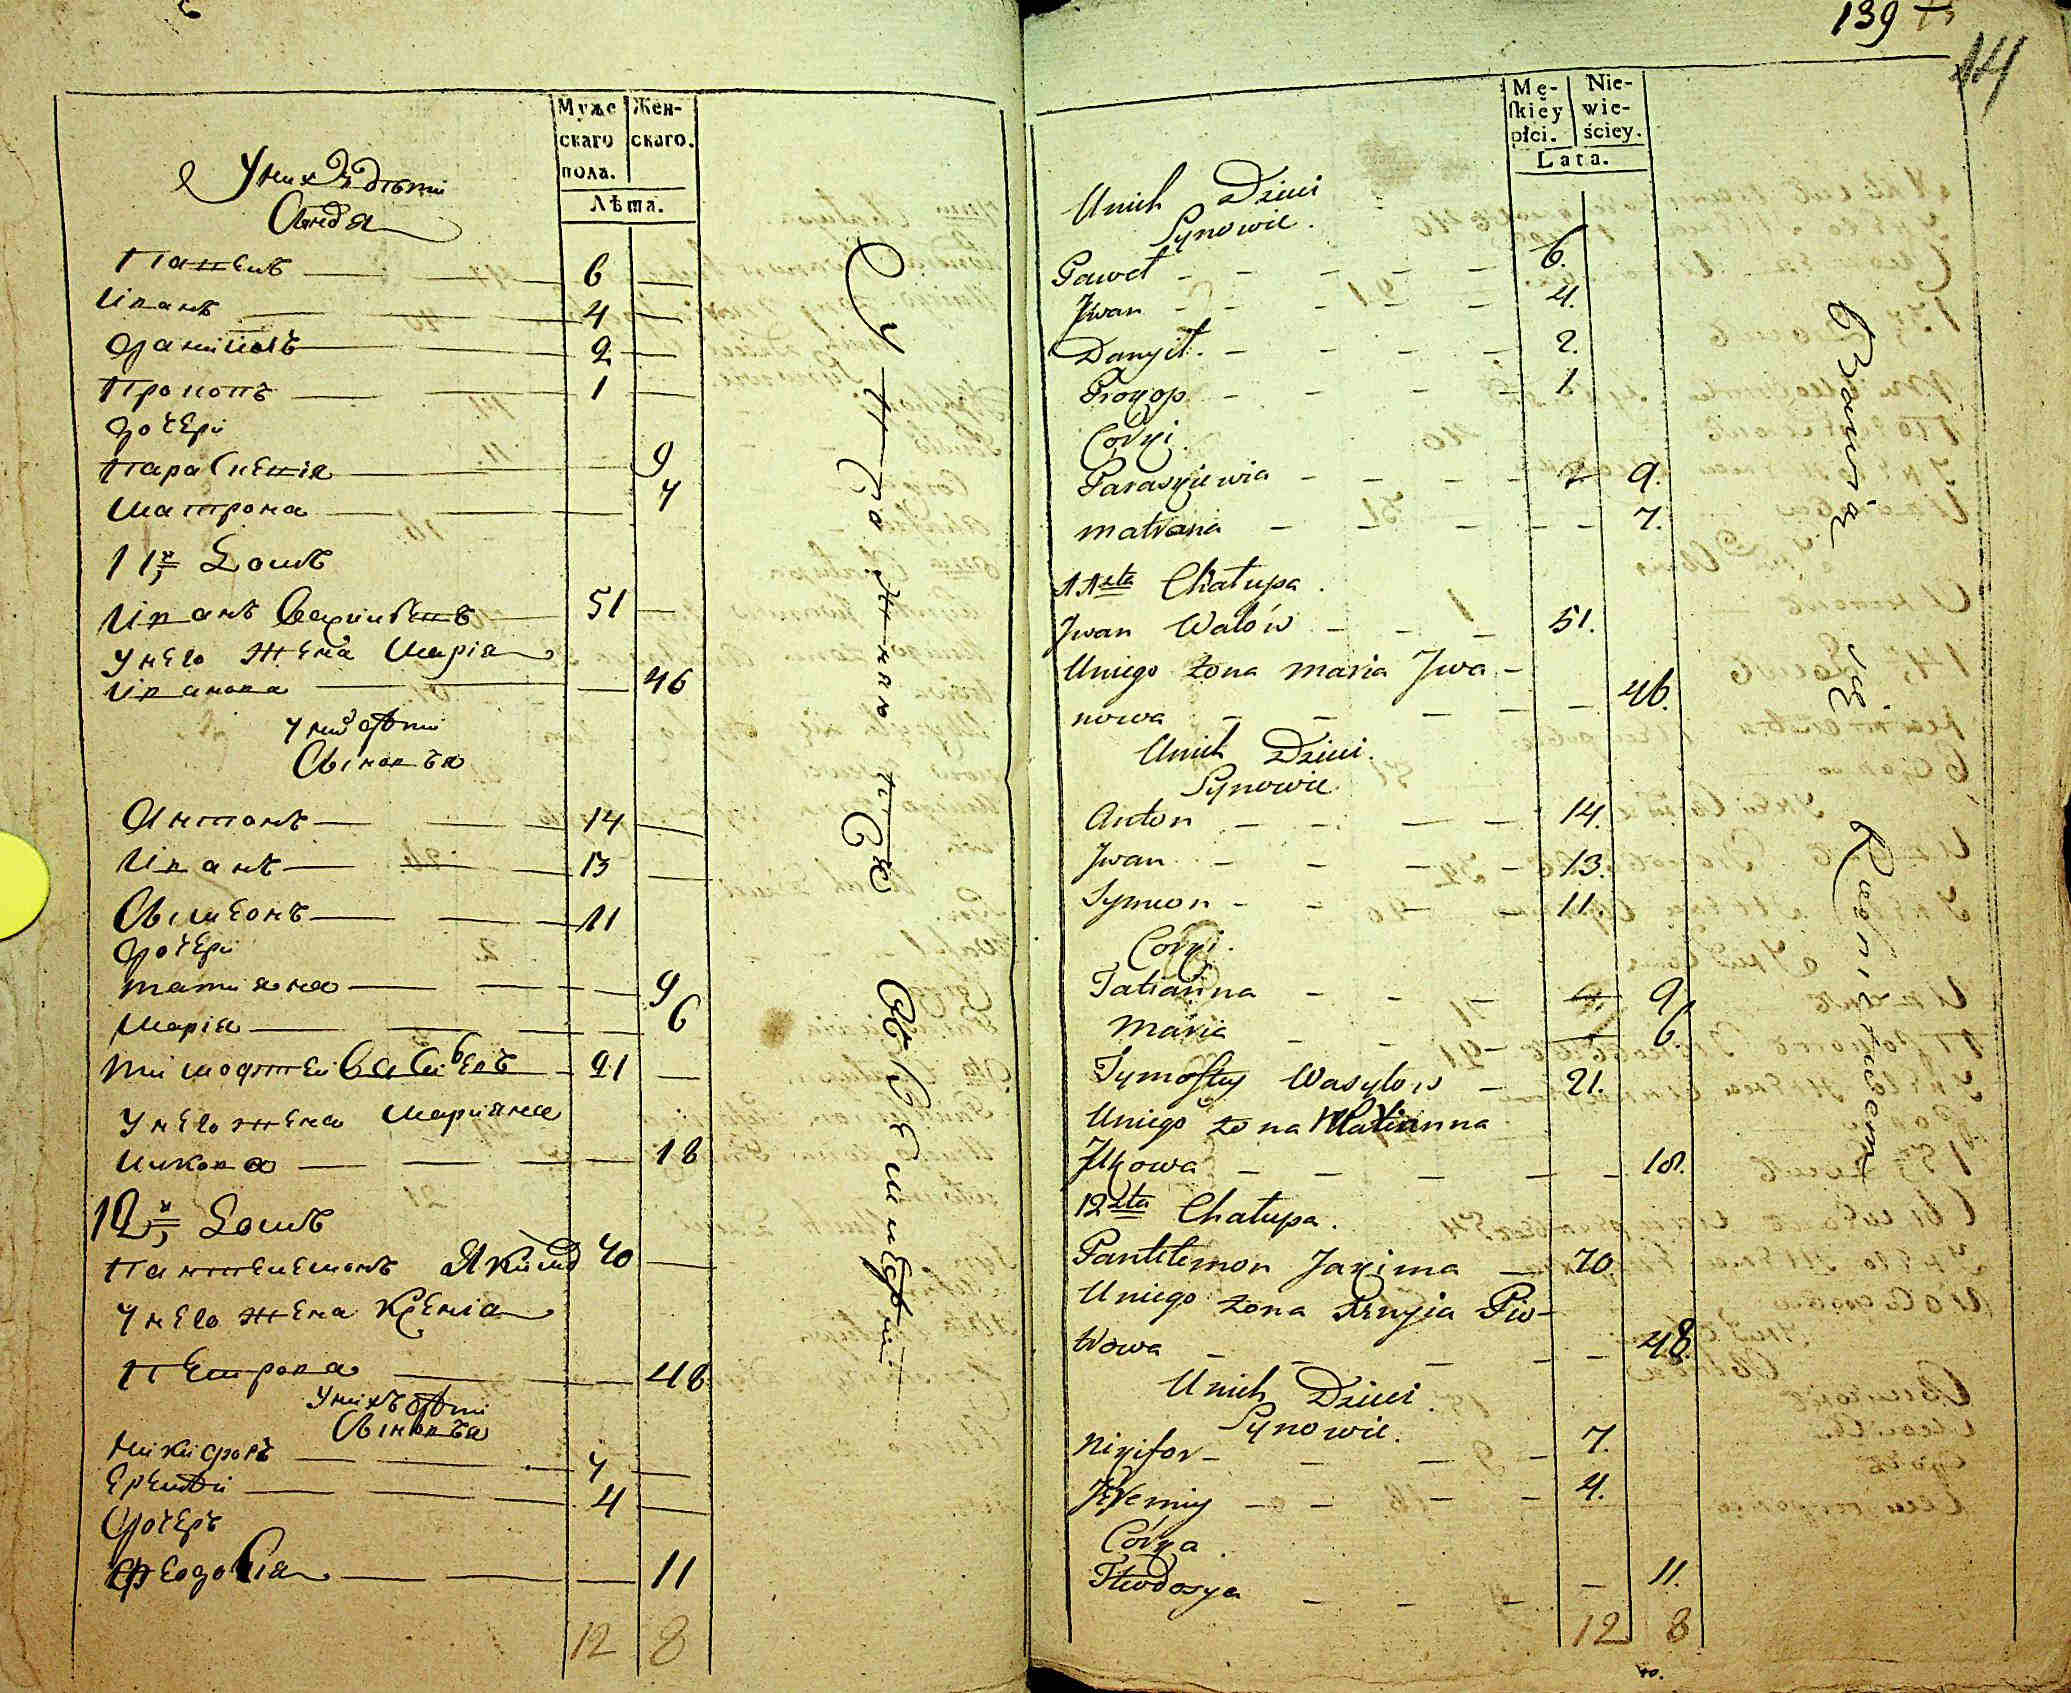 Муже
скаго
пола.
Жен-
скаго.
Лѣта.
У них дѣти
Павелъ 6
Иванъ 4
Данiилъ 2
Прокопъ 1
дочери
Параскевiя 9
Матрона 7
11 Домъ
Иванъ 51
У него жена Марiя
Иванова 46
У них дѣти
Сыновья
Антонъ 14
Иванъ 13
Сымеонъ 11
дочери
татияна 9
Марiя 6
Тимофтей 21
У него жена Марияна
Ицкова 18
12 Домъ
Пантелемонъ Яким 70
У него жена Ксенiя
Петрова 48
У нихъ дѣти
Сыновья
Никифоръ 7
Еремѣй 4
Дочеръ
Феодосiя 11
12 8
139
14
Mę-
skiey
płci.
Nie-
wie-
ściey.
Lata.
Unich Dzieci
Synowie.
Paweł 6.
Jwan 4.
Danyił. 2.
Prokop 1.
Corki
Paraskiewia 9.
Matrona 7.
11sta Chałupa.
Jwan Wałów 51.
Uniego żona Maria Jwa-
nowa 46.
Unich Dzieci.
Synowie
Anton 14.
Jwan 13.
Symeon 11.
Córki.
Tatianna 9.
Maria 6.
Tymoftey Wasylow 21.
Uniego żona Marianna
Jckowa 18.
12sta Chałupa.
Pantelemon Jakima 70
Uniego żona Xenyia Pio-
trowa 48.
Unich Dzieci.
Synowie.
Nikifor 7.
Jeremiy 4.
Córka
Teodosya 11.
12 8